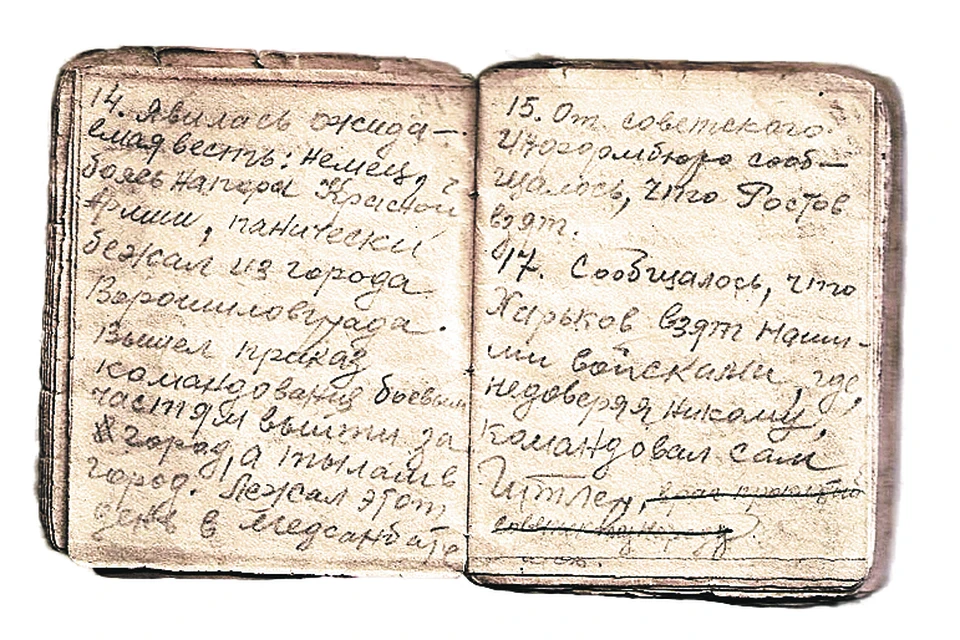 14. Явилась ожида-
емая весть: немец,
боясь напора Красной
Армии, панически
бежал из города
Ворошиловграда.
Вышел приказ
командования боевым
частям выйти за
город, а тылам в
город. Лежал этот
день в медсанбате
15. От советского
Информбюро сооб-
щалось, что Ростов
взят.
17. Сообщалось, что
Харьков взят наши-
ми войсками, где,
недоверяя никому,
командовал сам
Гитлер,